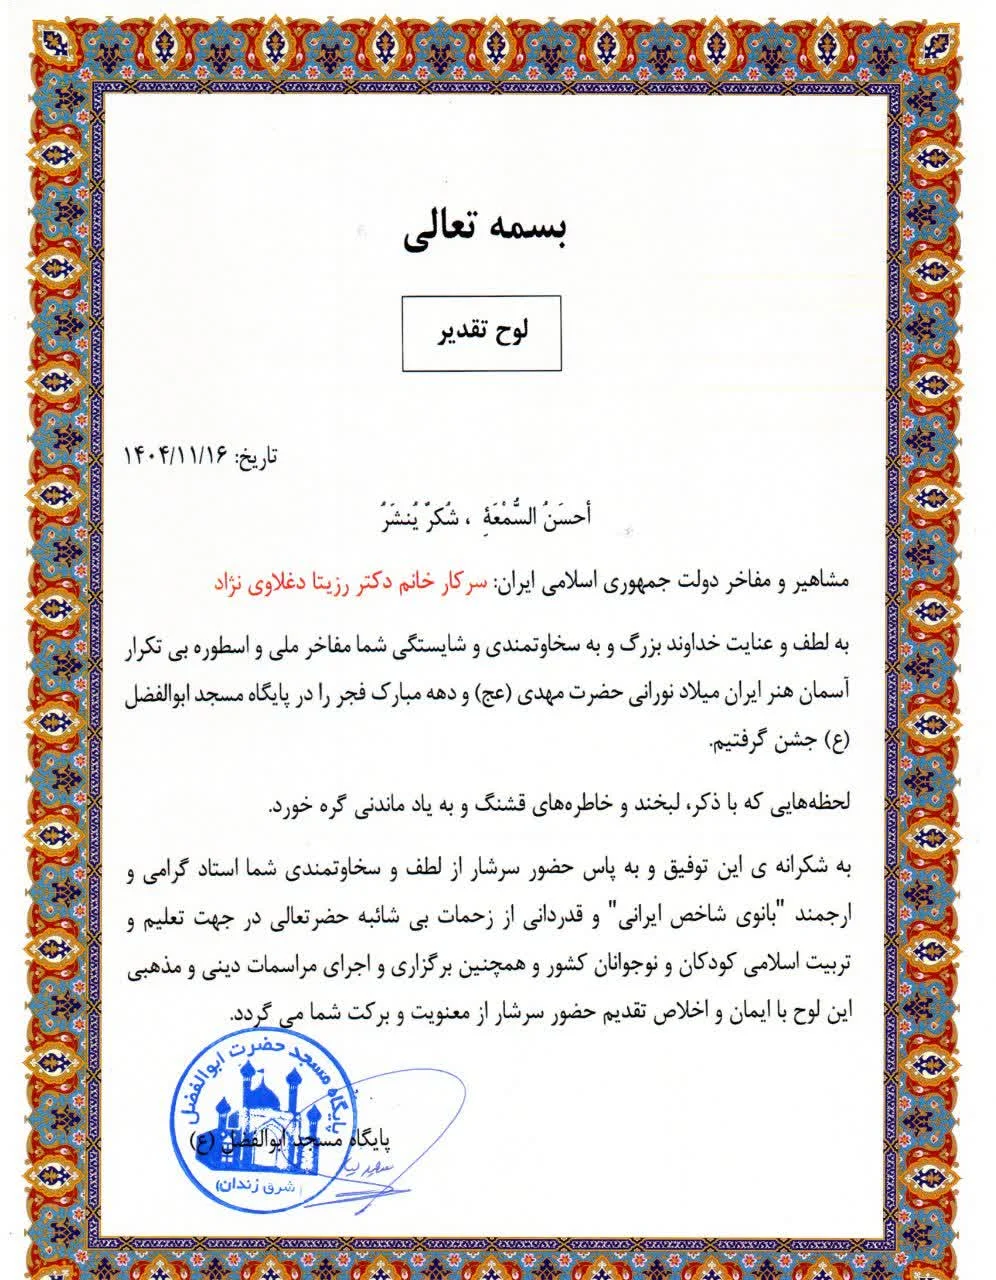 بسمه تعالی
لوح تقدیر
تاریخ: ۱۴۰۴/۱۱/۱۶
أحسَنُ السُّمْعَةِ ، شُکرٌ یُنشَرُ
مشاهیر و مفاخر دولت جمهوری اسلامی ایران: سرکار خانم دکتر رزیتا دغلاوی نژاد
به لطف و عنایت خداوند بزرگ و به سخاوتمندی و شایستگی شما مفاخر ملی و اسطوره بی تکرار
آسمان هنر ایران میلاد نورانی حضرت مهدی (عج) و دهه مبارک فجر را در پایگاه مسجد ابوالفضل
(ع) جشن گرفتیم.
لحظه‌هایی که با ذکر، لبخند و خاطره‌های قشنگ و به یاد ماندنی گره خورد.
به شکرانه ی این توفیق و به پاس حضور سرشار از لطف و سخاوتمندی شما استاد گرامی و
ارجمند "بانوی شاخص ایرانی" و قدردانی از زحمات بی شائبه حضرتعالی در جهت تعلیم و
تربیت اسلامی کودکان و نوجوانان کشور و همچنین برگزاری و اجرای مراسمات دینی و مذهبی
این لوح با ایمان و اخلاص تقدیم حضور سرشار از معنویت و برکت شما می گردد.
پایگاه مسجد حضرت ابوالفضل
پایگاه مسجد ابوالفضل (ع)
(شرق زندان)